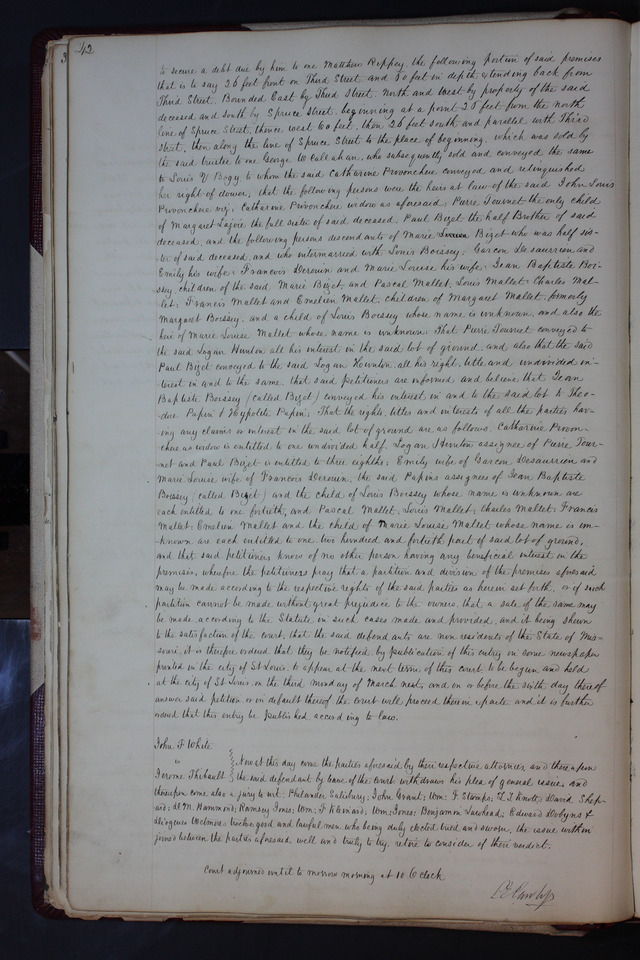 42
to secure a debt due by him to one Matthew Rippey, the following portion of said premises
that is to say 26 feet front on Third Street and 60 feet in depth extending back from
Third Street. Bounded East by Third Street. North and West by property of the said
deceased and south by Spruce Street, beginning at a point 25 feet from the north
line of Spruce Street, thence west 60 feet, then 26 feet south and parallel with Third
street, then along the line of Spruce Street to the place of beginning. which was sold by
the said trustee to one George W Callahan, who subsequently sold and conveyed the same
to Louis V Bogy to whom the said Catharine Provenchere conveyed and relinquished
her right of dower, that the following persons were the heirs at law of the said John Louis
Provenchere viz; Catharine Provenchere widow as aforesaid; Pierre Tournot the only child
of Margaret Lajoie the full sister of said deceased, Paul Bizet the half Brother of said
deceased, and the following persons descendants of Marie Bizet who was half sis-
ter of said deceased, and who intermarried with Louis Boissey; Garcon Desaurrien and
Emily his wife; Francois Derouin and Marie Louise his wife; Jean Baptiste Boi-
ssey children of the said Marie Bizet and Pascal Mallet, Louis Mallet; Charles Mal-
let; Francis Mallet and Emelien Mallet, children of Margaret Mallet, formerly
Margaret Boissey, and a child of Louis Boissey whose name is unknown, and also the
heir of Marie Louise Mallet whose name is unknown. That Pierre Tournot conveyed to
the said Logan Hunton all his interest in the said lot of ground, and also that the said
Paul Bizet conveyed to the said Logan Hunton all his right, title and undivided in-
terest in and to the same, that said petitioners are informed and believe that Jean
Baptiste Boissey (called Bizet) conveyed his interest in and to the said lot to Theo-
dore Papin & Hypolite Papin. That the rights, titles and interests of all the parties hav-
ing any claim or interest in the said lot of ground are as follows. Catharine Proven-
chere as widow is entitled to one undivided half, Logan Hunton assignee of Pierre Tour-
not and Paul Bizet is entitled to three eighths; Emily wife of Garcon Desaurrien and
Marie Louise wife of Francois Derouin, the said Papins assignees of Jean Baptiste
Boissey (called Bizet) and the child of Louis Boissey whose name is unknown are
each entitled to one fortieth, and Pascal Mallet, Louis Mallet; Charles Mallet; Francis
Mallet; Emelien Mallet and the child of Marie Louise Mallet whose name is un-
known are each entitled to one two hundred and fortieth part of said lot of ground,
and that said petitioners know of no other person having any beneficial interest in the
premises, wherefore the petitioners pray that a partition and division of the premises aforesaid
may be made according to the respective rights of the said parties as herein set forth, or if such
partition cannot be made without great prejudice to the owners, that a sale of the same may
be made according to the Statute in such cases made and provided, and it being shown
to the satisfaction of the court, that the said defendants are non residents of the State of Mis-
souri, it is therefore ordered that they be notified by publication of this entry in some newspaper
printed in the city of St Louis to appear at the next term of this court to be begun and held
at the city of St Louis on the third monday of March next, and on or before the sixth day thereof
answer said petition, or in default thereof the court will proceed therein exparte and it is further
ordered that this entry be published according to law.
John F White
vs
Now at this day come the parties aforesaid by their respective attornies, and thereupon
Jerome Thibault the said defendant by leave of the court withdraws his plea of general issue, and
thereupon come also a jury to wit; Philander Salisbury; John Grant; Wm F Stamps; T. T Knott; David Shep-
ard; M. Hammond; Ramsey Jones; Wm F Kleinard; Wm Jones; Benjamin Lawhead; Edward Dobyns &
Diogenes twelve good and lawful men who being duly elected, tried and sworn, the issue within
joined between the parties aforesaid, well and truly to try, retire to consider of their verdict.
Court adjourned until to morrow morning at 10 O clock